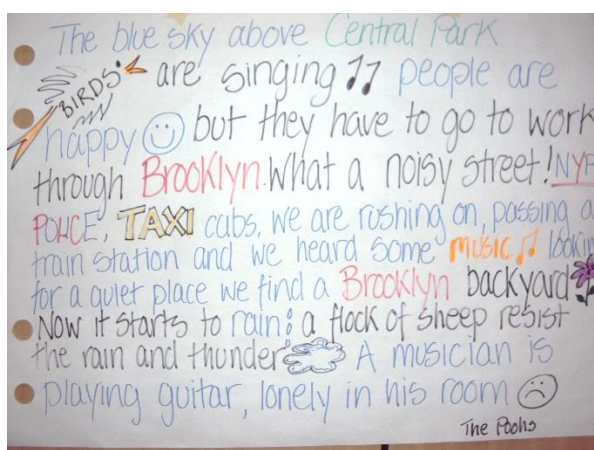 The blue sky above Central Park
BIRDS are singing people are
happy but they have to go to work
through Brooklyn. What a noisy street! NYP
POLICE, TAXI cabs, we are rushing on, passing a
train station and we heard some MUSIC lookin
for a quiet place we find a Brooklyn backyard
Now it starts to rain: a flock of sheep resist
the rain and thunder A musician is
playing guitar, lonely in his room
The Poohs